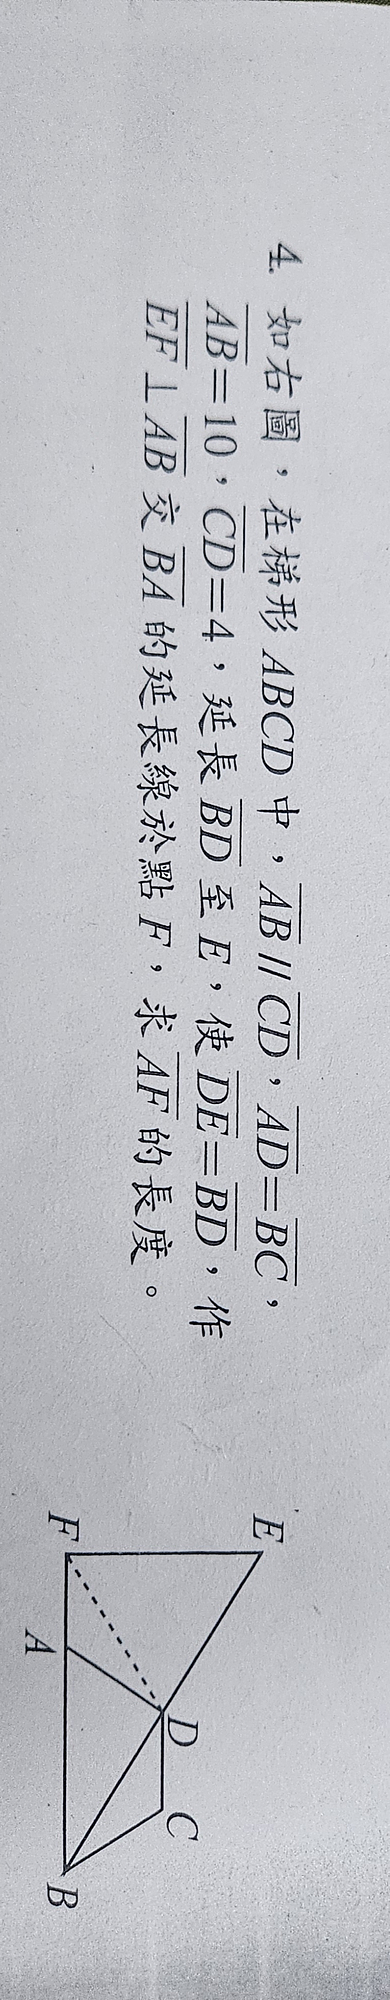 4. 如右圖，在梯形 ABCD 中，AB // CD，AD＝BC，
AB＝10，CD＝4，延長 BD 至 E，使 DE＝BD，作
EF⊥AB 交 BA 的延長線於點 F，求 AF 的長度。
E
D
C
F
A
B